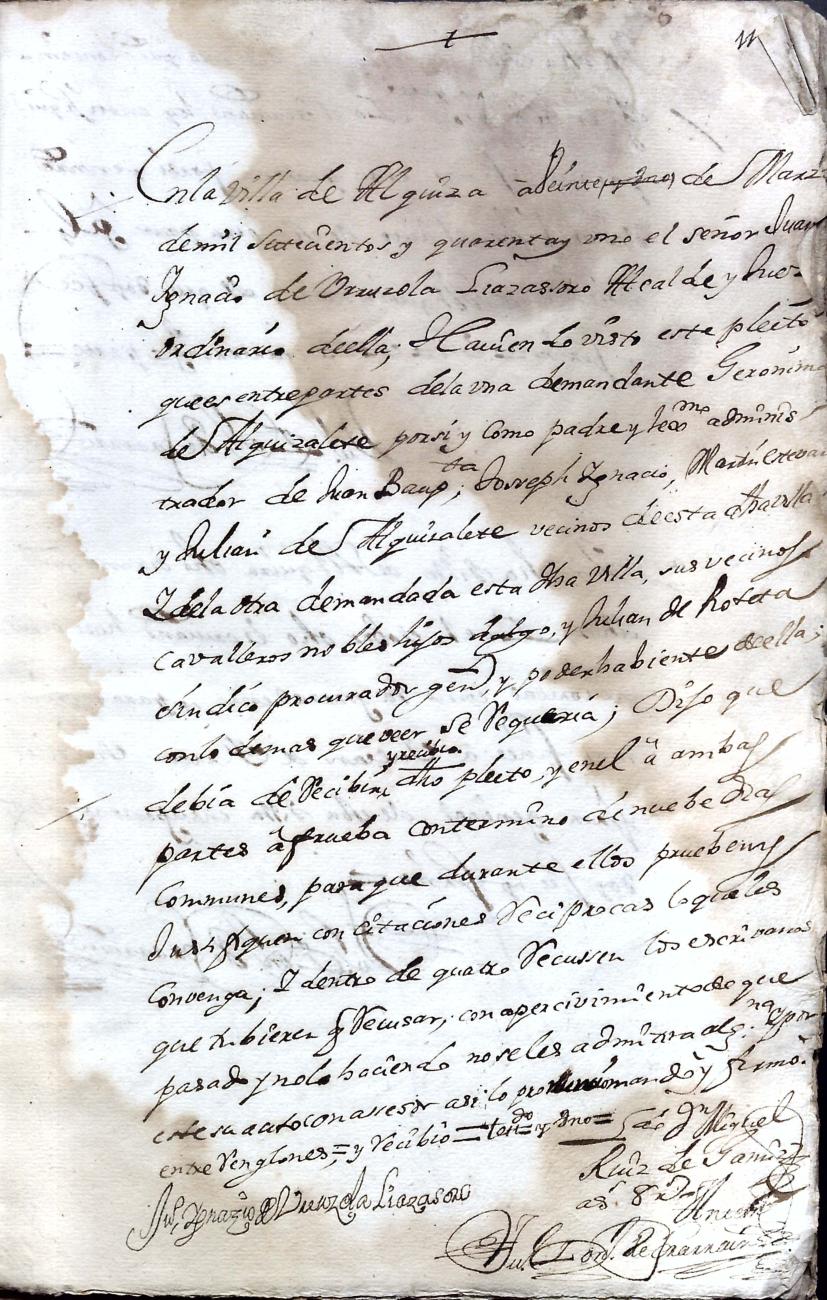 +
11
En la Villa de Alquiza a Veinte y uno de Marz
de mil setecientos y quarenta y uno el señor Juan
Ignacio de Vrruzola Liazasoro Alcalde y Juez
ordinario deella; Haviendo visto este pleito
que es entre partes dela vna demandante Geronimo
de Alquizalete por si y como padre y lexmo adminis
trador de Juan Baupta, Joseph Ignacio, Martin Estevan
y Julian de Alquizalete vecinos de esta dha villa
I dela otra demandada esta dha villa, sus vecinos
cavalleros nobles hijos dalgo, y Julian de Roteta
sindico procurador genl, y poderhabiente deella;
con lo demas que veer se Requeria; Dijo que
debia de Recibir, y recibio dho pleito, y en el a ambas
partes a prueba con termino de nuebe dias
Communes, para que durante ellos prueben y
Justifiquen con citaciones Reciprocas lo que les
Convenga; I dentro de quatro Recussen los escrivanos
que tubieren q Recusar, con apercivimiento de que
pasado y no lo haciendo no se les admitira alguna, y por
este su auto con asesor asi lo mando y firmo.
entre Renglones = y Recibio = testdo y uno =
Miguel
Ruiz de
Jun Ignazio de Vrruzola Liazasoro